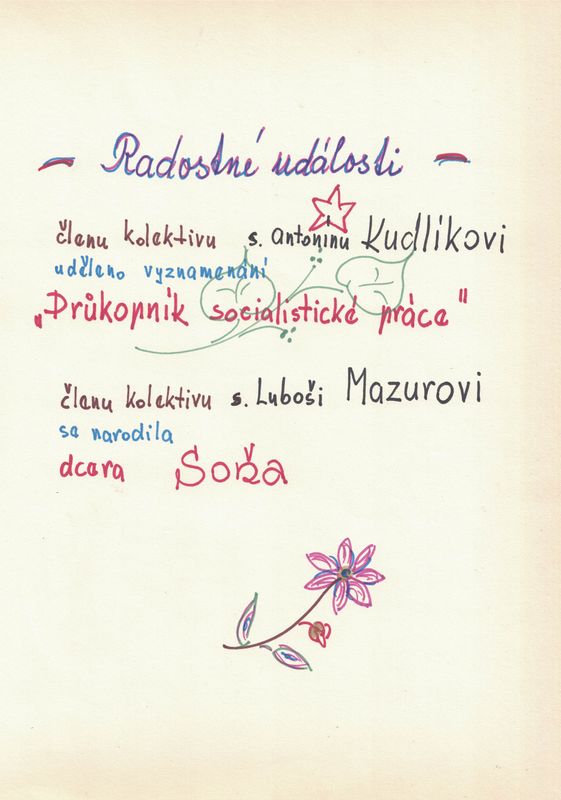 – Radostné události –
členu kolektivu s. Antonínu Kudlíkovi
uděleno vyznamenání
„Průkopník socialistické práce"
členu kolektivu s. Luboši Mazurovi
se narodila
dcera Soňa